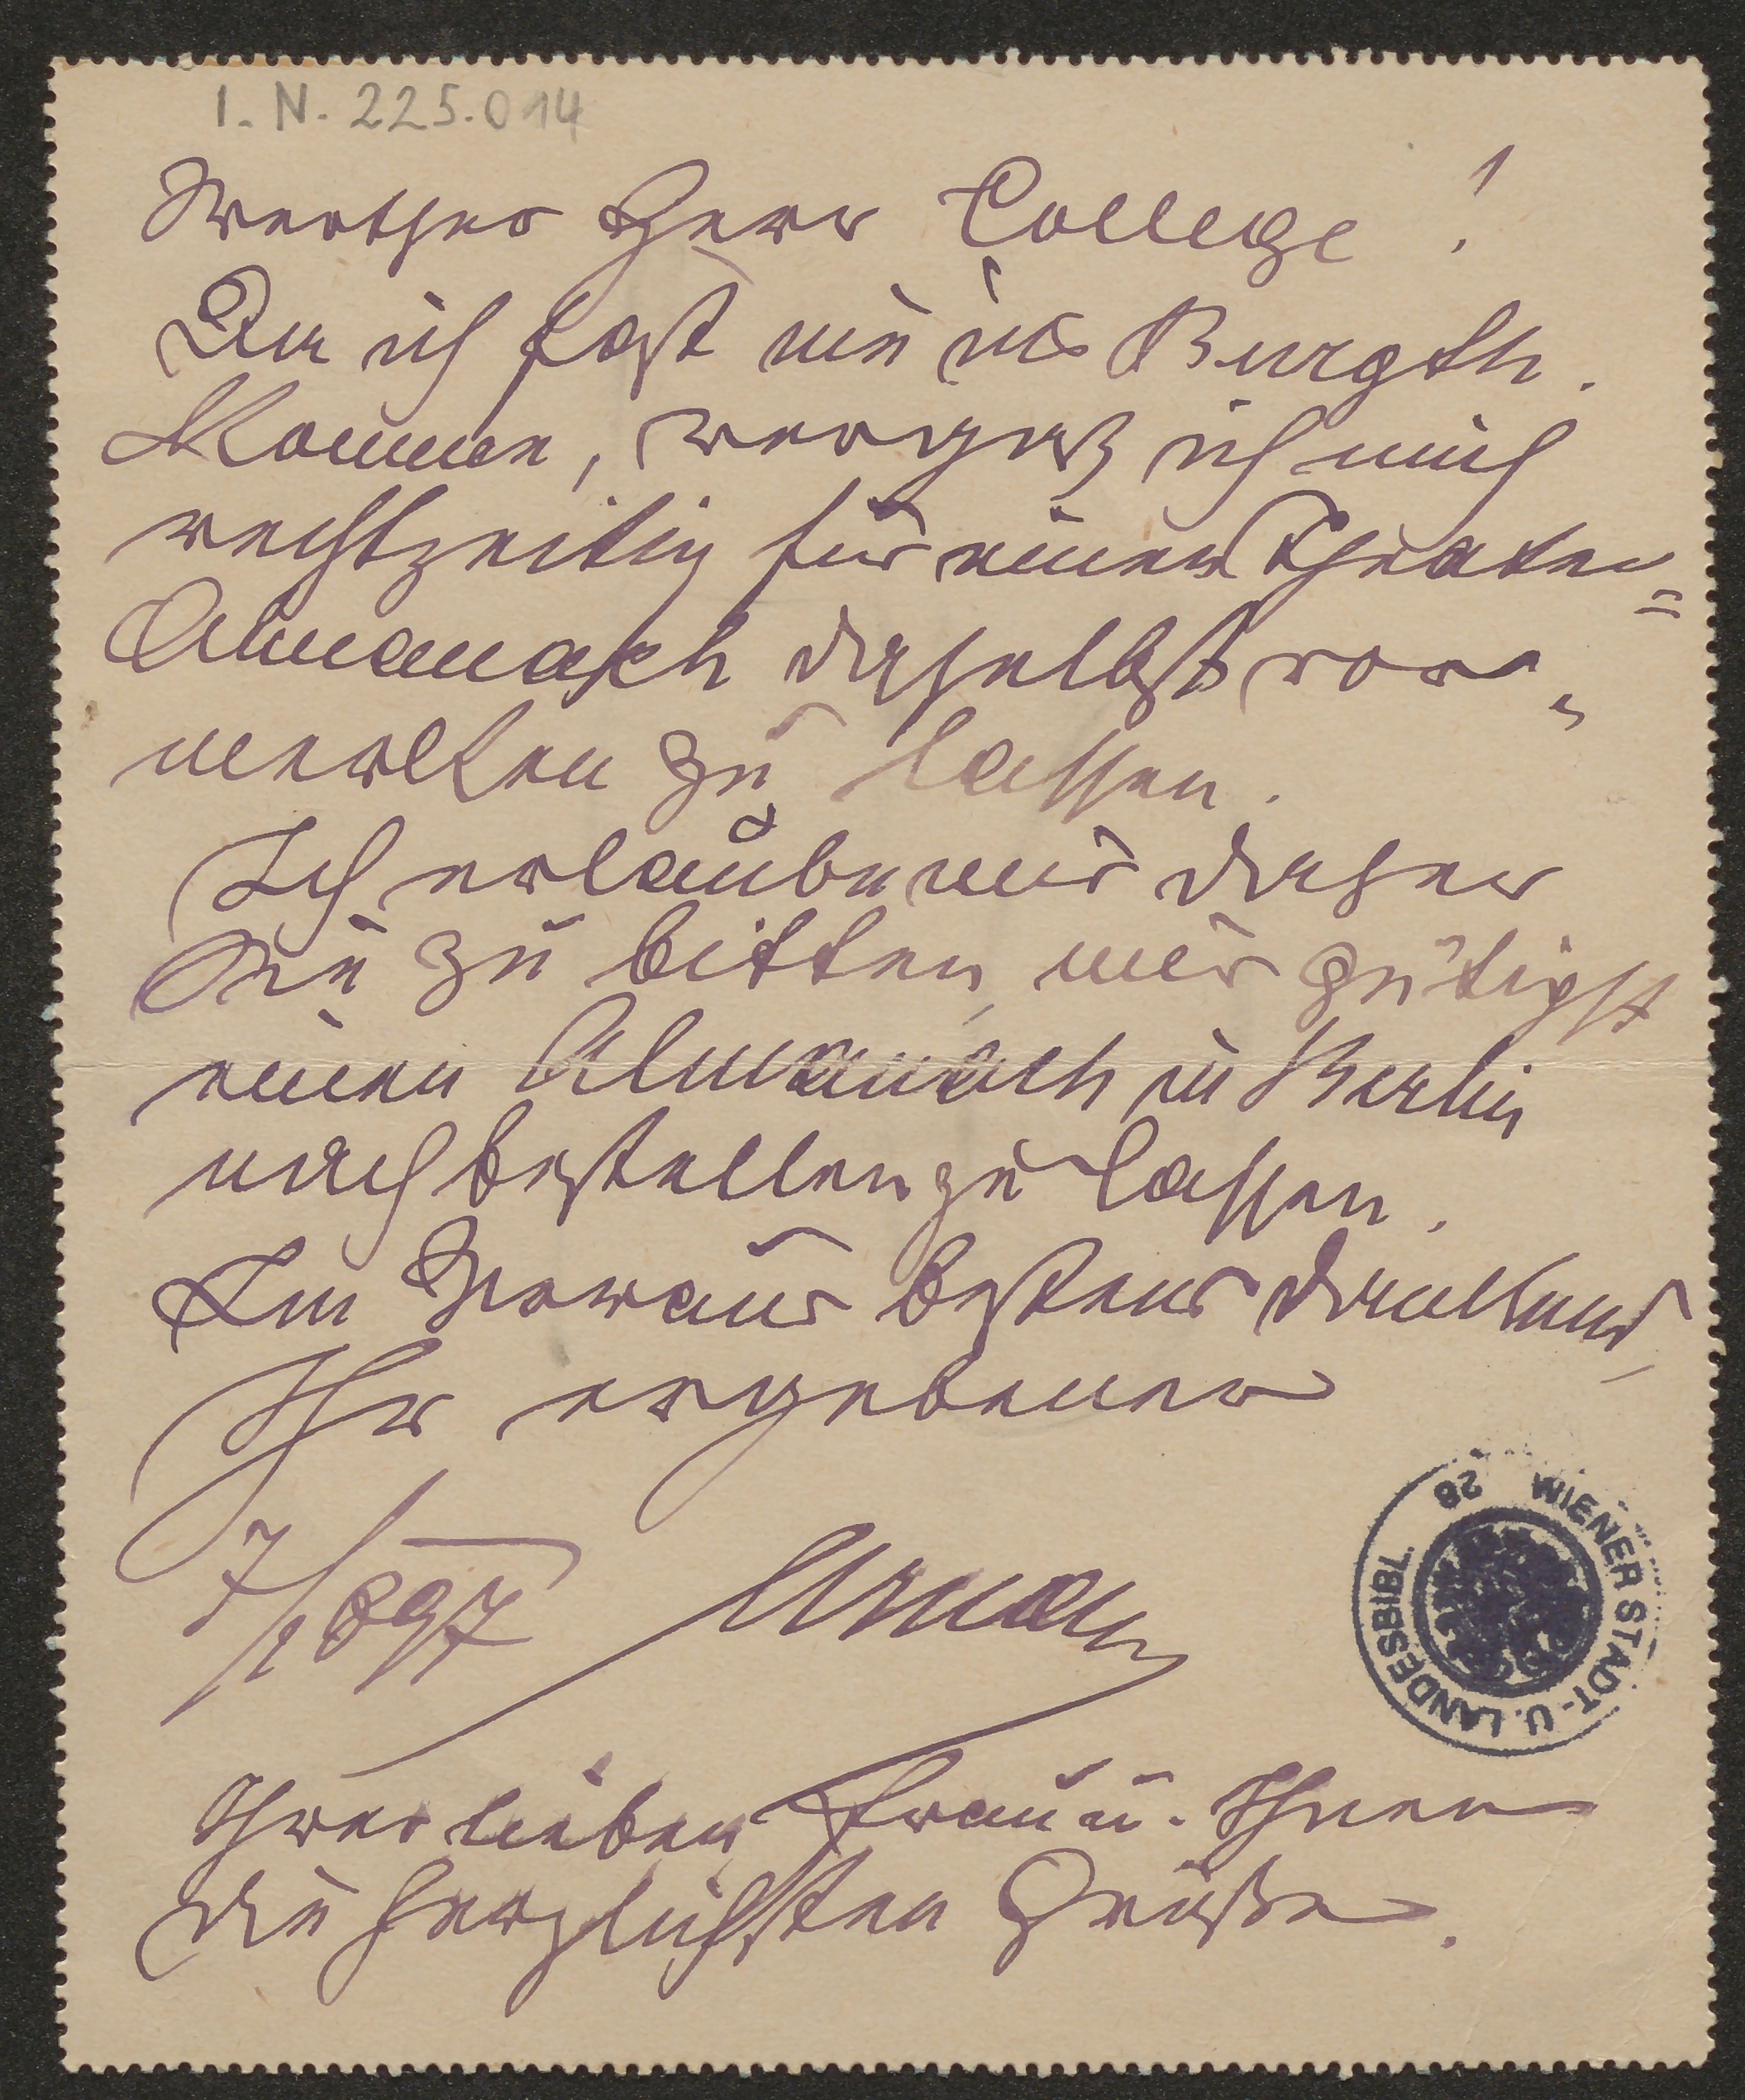 I. N. 225.014
Werther Herr College!
Da ich fast nie ins Burgth.
komme, vergaß ich mich
rechtzeitig für einen Theater=
Almanach daselbst vor=
merken zu lassen.
Ich erlaube mir daher
Sie zu bitten, mir gütigst
einen Almanach in Berlin
nachbestellen zu lassen.
Im Voraus bestens dankend,
Ihr ergebener
7/1 897
Ihrer lieben Frau u. Ihnen
die herzlichsten Grüße.
WIENER STADT- U. LANDESBIBL. 28